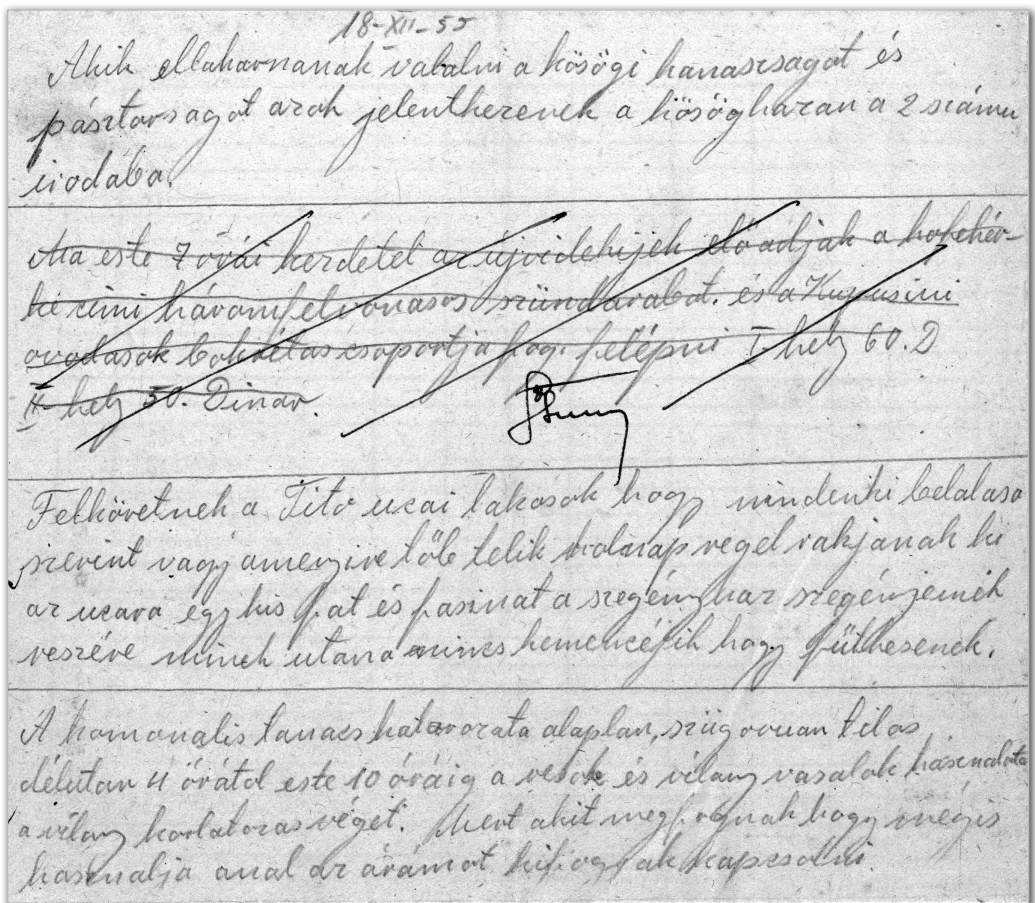 18-XII-55
Akik ellakarnanak valalni a kösögi kanaszsagot és
pásztorsagot azok jelentkezenek a kösögházan a 2 számu
irodába.
Ma este 7 órái kezdetel az újvidekijek előadjak a
ki cimi három felvonasos szündarabat. és a Kupusini
ovodások bokrétas csoportja fog. felépni I. hely 60. D
II- hely 50. Dinar.
Felkövetnek a Titó ucai lakosok hogy mindenki belalasa
szerint vagy amenyire töb telik holnap regel rakjanak ki
az ucara egy kis fat és fasinat a szegényhaz szegényeinek
reszére minek utana nincs kemencéjik hogy fűthesenek.
A komonalis tanacs hatarozata alaplan, szügoruan tilos
délutan 4 órától este 10 óráig a resok és vilany vasalok hasznalata
a vilany korlatozas véget. Mert akit megfognak hogy mégis
hasznalja anal az áramot kifogjak kapcsolni.